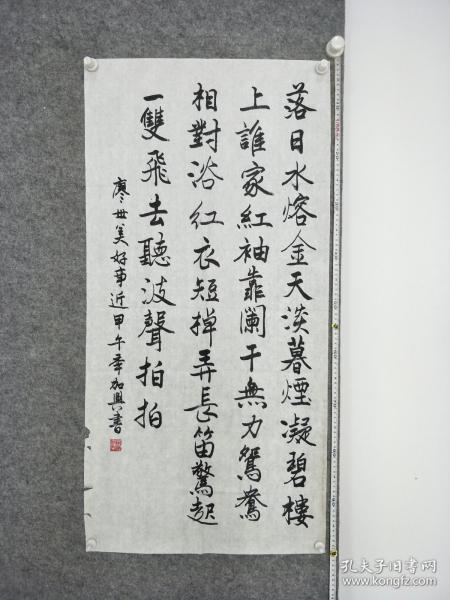 落日水熔金天淡暮煙凝碧樓
上誰家紅袖靠闌干無力鴛鴦
相對浴紅衣短棹弄長笛驚起
一雙飛去聽波聲拍拍
廖世美好事近甲午加興書
孔夫子旧书网
www.kongfz.com